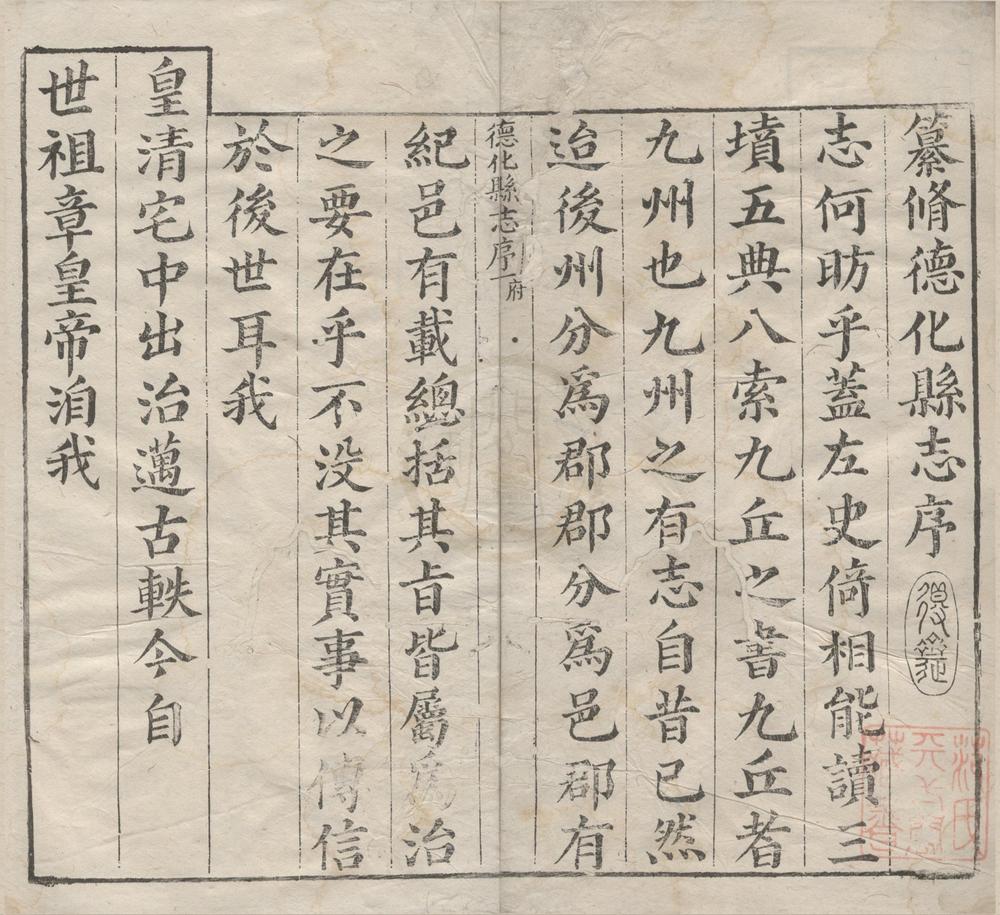 纂脩德化縣志序
志何昉乎蓋左史倚相能讀三
墳五典八索九丘之書九丘者
九州也九州之有志自昔已然
迨後州分爲郡郡分爲邑郡有
德化縣志序 府 一
紀邑有載總括其旨皆屬爲治
之要在乎不没其實事以傳信
於後世耳我
皇清宅中出治邁古軼今自
世祖章皇帝洎我